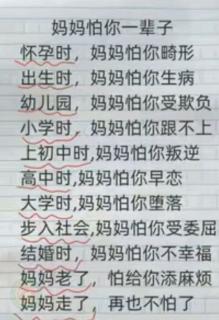 妈妈怕你一辈子
怀孕时，妈妈怕你畸形
出生时，妈妈怕你生病
幼儿园，妈妈怕你受欺负
小学时，妈妈怕你跟不上
上初中时,妈妈怕你叛逆
高中时,妈妈怕你早恋
大学时,妈妈怕你堕落
步入社会,妈妈怕你受委屈
结婚时，妈妈怕你不幸福
妈妈老了，怕给你添麻烦
妈妈走了，再也不怕了